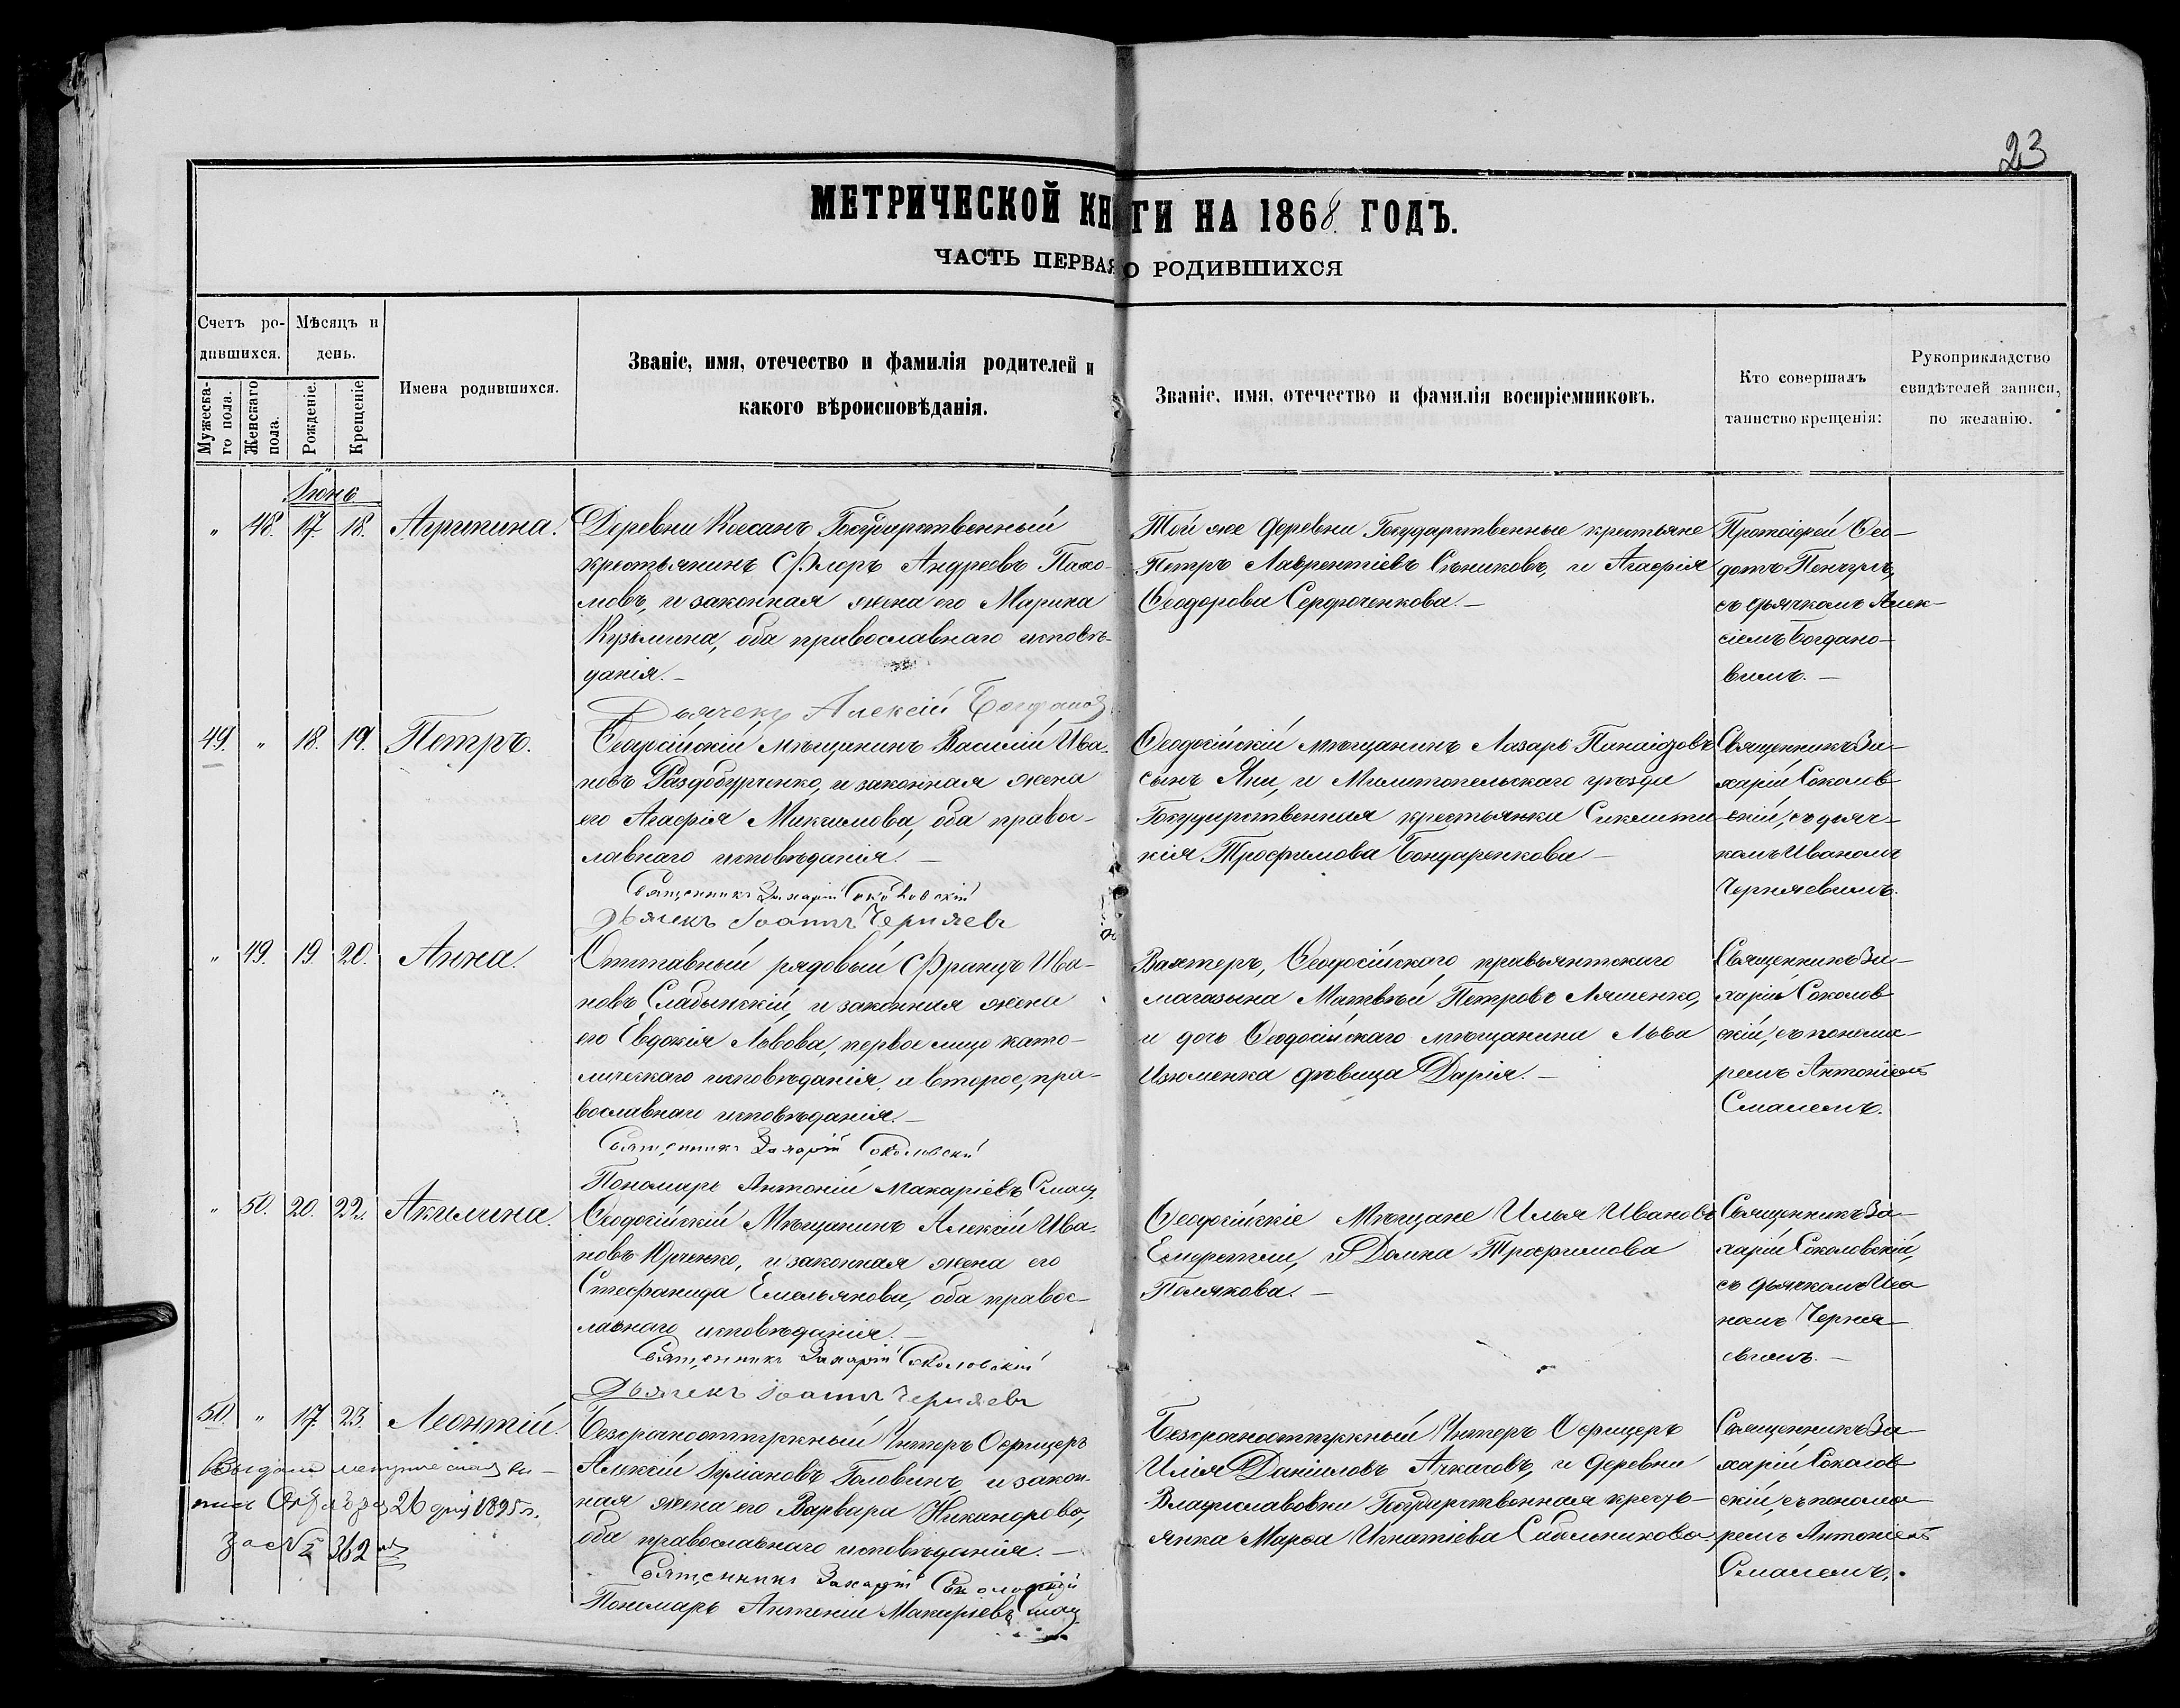 23
МЕТРИЧЕСКОЙ КНИГИ НА 1868 ГОДЪ.
ЧАСТЬ ПЕРВАЯ О РОДИВШИХСЯ
Счетъ ро-
дившихся.
Мѣсяцъ и
день.
Мужеска-
го пола.
Женскаго
пола.
Рожденіе.
Крещеніе
Имена родившихся.
Званіе, имя, отечество и фамилія родителей и
какого вѣроисповѣданія.
Званіе, имя, отечество и фамилія воспріемниковъ.
Кто совершалъ
таинство крещенія:
Рукоприкладство
свидѣтелей записи,
по желанію.
Іюнь
" 48. 17. 18. Агрипина.
Деревни Коссанъ Государственный
крестьянинъ Флоръ Андреевъ Пахо-
мовъ, и законная жена его Марина
Кузьмина, оба православнаго исповѣ-
данія.—
Дьячекъ Алексій Богданов
Той же деревни Государственные крестьяне
Петръ Лаврентіевъ Сѣниковъ, и Агафія
Ѳеодорова Сердюченкова.—
Протоіерей Ѳео-
дотъ Пенчулъ,
съ дьячкомъ Алек-
сіемъ Богдано-
вимъ.—
49. " 18. 19. Петръ.
Ѳеодосійскій мѣщанинъ Василій Ива-
новъ Раздобурченко, и законная жена
его Агафія Максимова, оба правос-
лавнаго исповѣданія.—
Священникъ Захарій Соколовскій
Дьячекъ Іоаннъ Черняевъ
Ѳеодосійскій мѣщанинъ Лазарь Панаіотовъ
сынъ Яни, и Мелитопельскаго уѣзда
Государственная крестьянка Синклити-
кія Трофимова Бондаренкова—
Священникъ За-
харій Соколов-
скій, съ дьяч-
комъ Иваномъ
Черняевимъ.
" 49. 19. 20. Анна.
Отставный рядовый Францъ Ива-
новъ Слабынскій, и законная жена
его Евдокія Львова, первое лицо като-
лическаго исповѣданія, а второе, пра-
вославнаго исповѣданія.—
Священникъ Захарій Соколовскій
Пономарь Антоній Макаріевъ Смац
Вахтеръ, Ѳеодосійскаго провьянтскаго
магазына Матвѣй Петровъ Ляшенко,
и дочь Ѳеодосійскаго мѣщанина Льва
Изюменка дѣвица Дарія.—
Священникъ За-
харій Соколов-
скій, съ понома-
ремъ Антоніемъ
Смацемъ.
" 50. 20. 22. Акилина.
Ѳеодосійскій Мѣщанинъ Алексій Ива-
новъ Юрченко, и законная жена его
Стефанида Емельянова, оба правос-
лавнаго исповѣданія.—
Священникъ Захарій Соколовскій
Дьячекъ Іоаннъ Черняевъ
Ѳеодосійскіе Мѣщане Илья Ивановъ
и Домна Трофимова
Полякова.—
Священникъ За-
харій Соколовскій,
съ дьячкомъ Ива-
номъ Черня-
евимъ.—
50. " 17. 23. Леонтій.
Безсрочноотпускный Унтеръ Офицеръ
Алексій Іуліановъ Головинъ, и закон-
ная жена его Варвара Никанорова,
оба православнаго исповѣданія.—
Священникъ Захарій Соколовскій
Пономарь Антоній Макаріевъ Смац
Безсрочноотпускный Унтеръ Офицеръ
Илія Даніиловъ Аткасовъ, и деревни
Владиславовки Государственная кресть-
янка Марѳа Игнатіева Сабельникова.
Священникъ За-
харій Соколов-
скій, съ понома-
ремъ Антоніемъ
Смацемъ.
Выдана метрическая вы-
пись 26 дня 1895 г.
за № 362